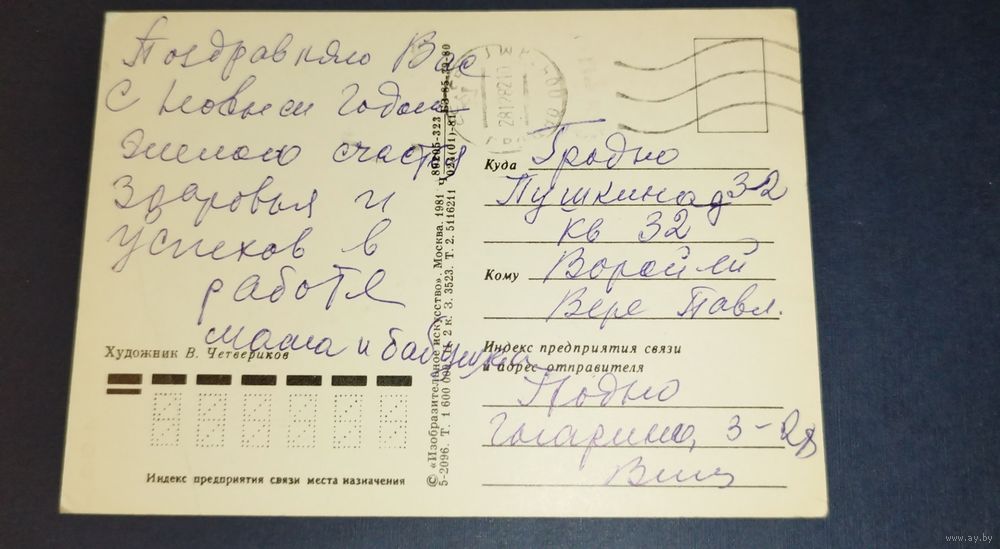 Поздравляю Вас
С Новым годом
Желаю счастья
Здоровья и
успехов в
работе
мама и бабушка
Художник В. Четвериков
Индекс предприятия связи места назначения
© «Изобразительное искусство». Москва. 1981
5-2096. Т. 1 600 000. З. 3523. Т. 2. 5116211
Куда Гродно
Пушкина д 32
кв 32
Кому
Вере Павл.
Индекс предприятия связи
и адрес отправителя
Гагарина, 3-
www.ay.by